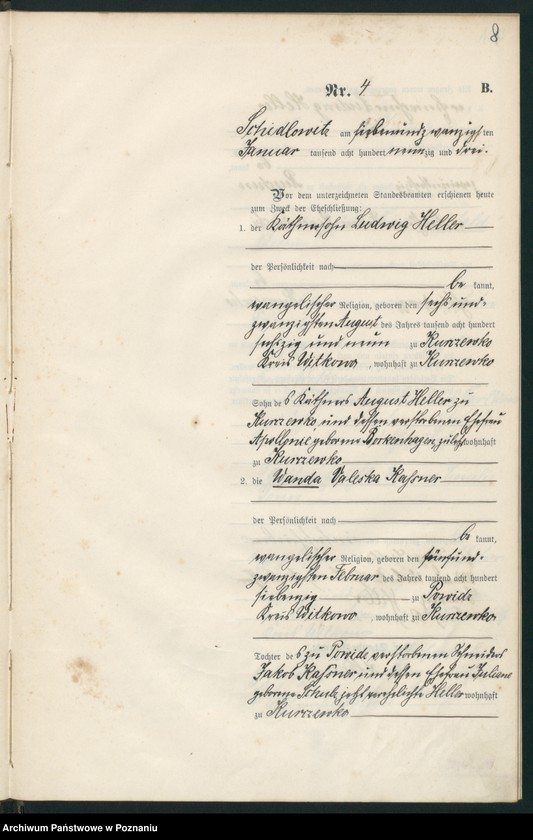 8
Nr. 4 B.
Schidlowitz am siebenundzwanzigsten
Januar tausend acht hundert neunzig und drei.
Vor dem unterzeichneten Standesbeamten erschienen heute
zum Zweck der Eheschließung:
1. der Käthnersohn Ludwig Heller
der Persönlichkeit nach
be kannt,
evangelischer Religion, geboren den sechsund-
zwanzigsten August des Jahres tausend acht hundert
sechszig und neun zu Kurzewko
Kreis Witkowo, wohnhaft zu Kurzewko
Sohn des Käthners August Heller zu
Kurzewko und dessen verstorbenen Ehefrau
Apollonie geborene Borkenhagen, zuletzt wohnhaft
zu Kurzewko
2. die Wanda Valeska Kassner
der Persönlichkeit nach
be kannt,
evangelischer Religion, geboren den fünfund-
zwanzigsten Februar des Jahres tausend acht hundert
siebenzig zu Powidz
Kreis Witkowo, wohnhaft zu Kurzewko
Tochter des zu Powidz verstorbenen Schneiders
Jakob Kassner und dessen Ehefrau Juliane
geborene Schulz jetzt verehelichte Heller wohnhaft
zu Kurzewko
Archiwum Państwowe w Poznaniu